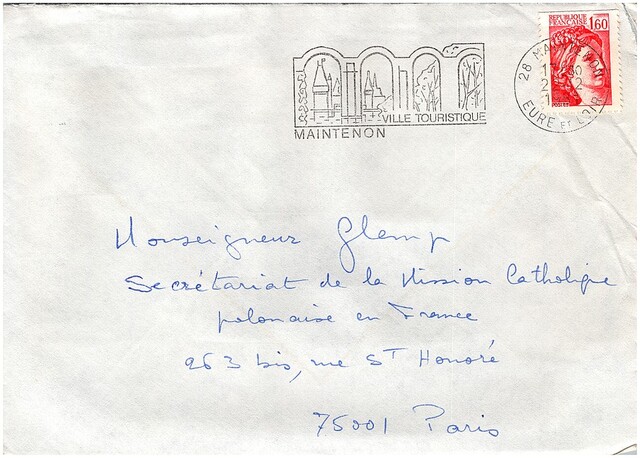 REPUBLIQUE FRANÇAISE 1,60
28 MAINTENON
EURE ET LOIR
VILLE TOURISTIQUE
MAINTENON
Monseigneur Glemp
Secrétariat de la Mission Catholique
polonaise en France
263 bis, rue ST Honoré
75001 Paris